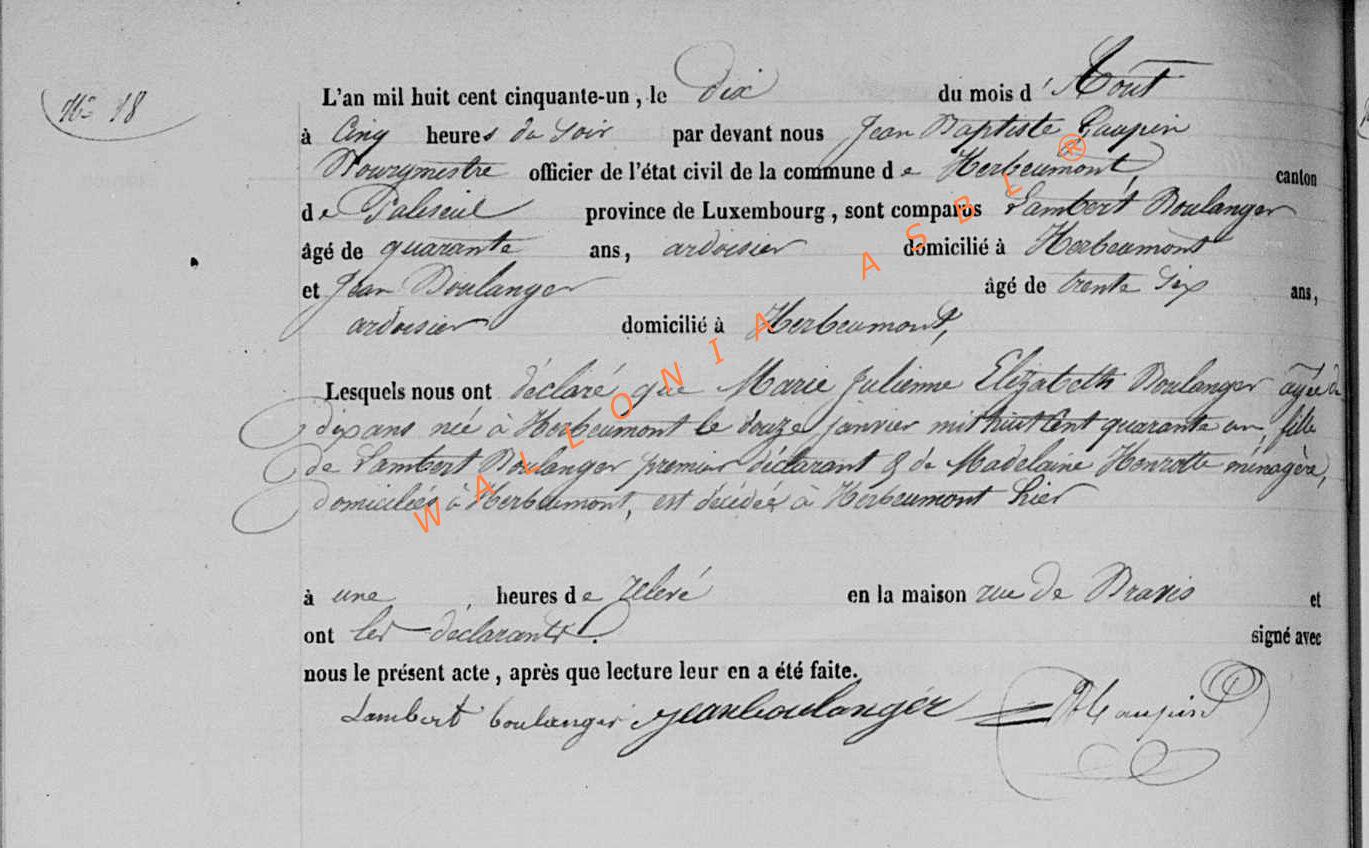 N° 18
L'an mil huit cent cinquante-un, le dix du mois d'Aout
à Cinq heures du soir par devant nous Jean Baptiste Gaupin
Bourgmestre officier de l'état civil de la commune de Herbeumont canton
de Paliseul province de Luxembourg, sont comparus Lambert Boulanger
âgé de quarante ans, ardoisier domicilié à Herbeumont
et Jean Boulanger âgé de trente six ans,
ardoisier domicilié à Herbeumont,
Lesquels nous ont déclaré que Marie Julienne Elizabeth Boulanger âgée de
dix ans née à Herbeumont le douze janvier mil huit cent quarante un, fille
de Lambert Boulanger premier déclarant & de Madelaine Henrotte ménagère,
domiciliés à Herbeumont, est décédée à Herbeumont hier
à une heures de en la maison rue de et
ont les déclarants. signé avec
nous le présent acte, après que lecture leur en a été faite.
Lambert boulanger jean boulanger
WALLONIA ASBL ®